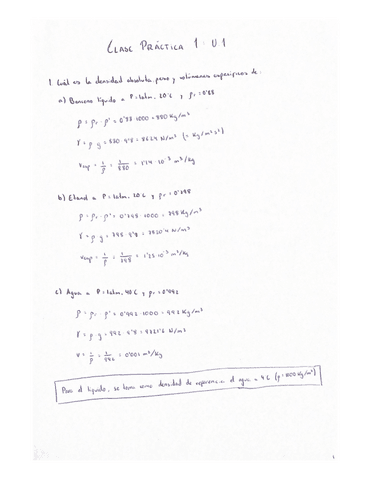 CLASE PRÁCTICA 1 · U1
1 Cuál es la densidad absoluta, peso y volúmenes específicos de:
a) Benceno líquido a P=1atm, 20ºC y ρr = 0'88
ρ = ρr · ρ° = 0'88 · 1000 = 880 Kg/m³
γ = ρ · g = 880 · 9'8 = 8624 N/m³ (= Kg/m²s²)
Vesp = 1/ρ = 1/880 = 1'14 · 10⁻³ m³/Kg
b) Etanol a P=1atm, 20ºC y ρr = 0'798
ρ = ρr · ρ° = 0'798 · 1000 = 798 Kg/m³
γ = ρ · g = 798 · 9'8 = 7820'4 N/m³
Vesp = 1/ρ = 1/798 = 1'25 · 10⁻³ m³/Kg
c) Agua a P=1atm, 40ºC y ρr = 0'992
ρ = ρr · ρ° = 0'992 · 1000 = 992 Kg/m³
γ = ρ · g = 992 · 9'8 = 9721'6 N/m³
V = 1/ρ = 1/992 = 0'001 m³/Kg
Para el líquido, se toma como densidad de referencia el agua a 4ºC (ρ=1000 Kg/m³)